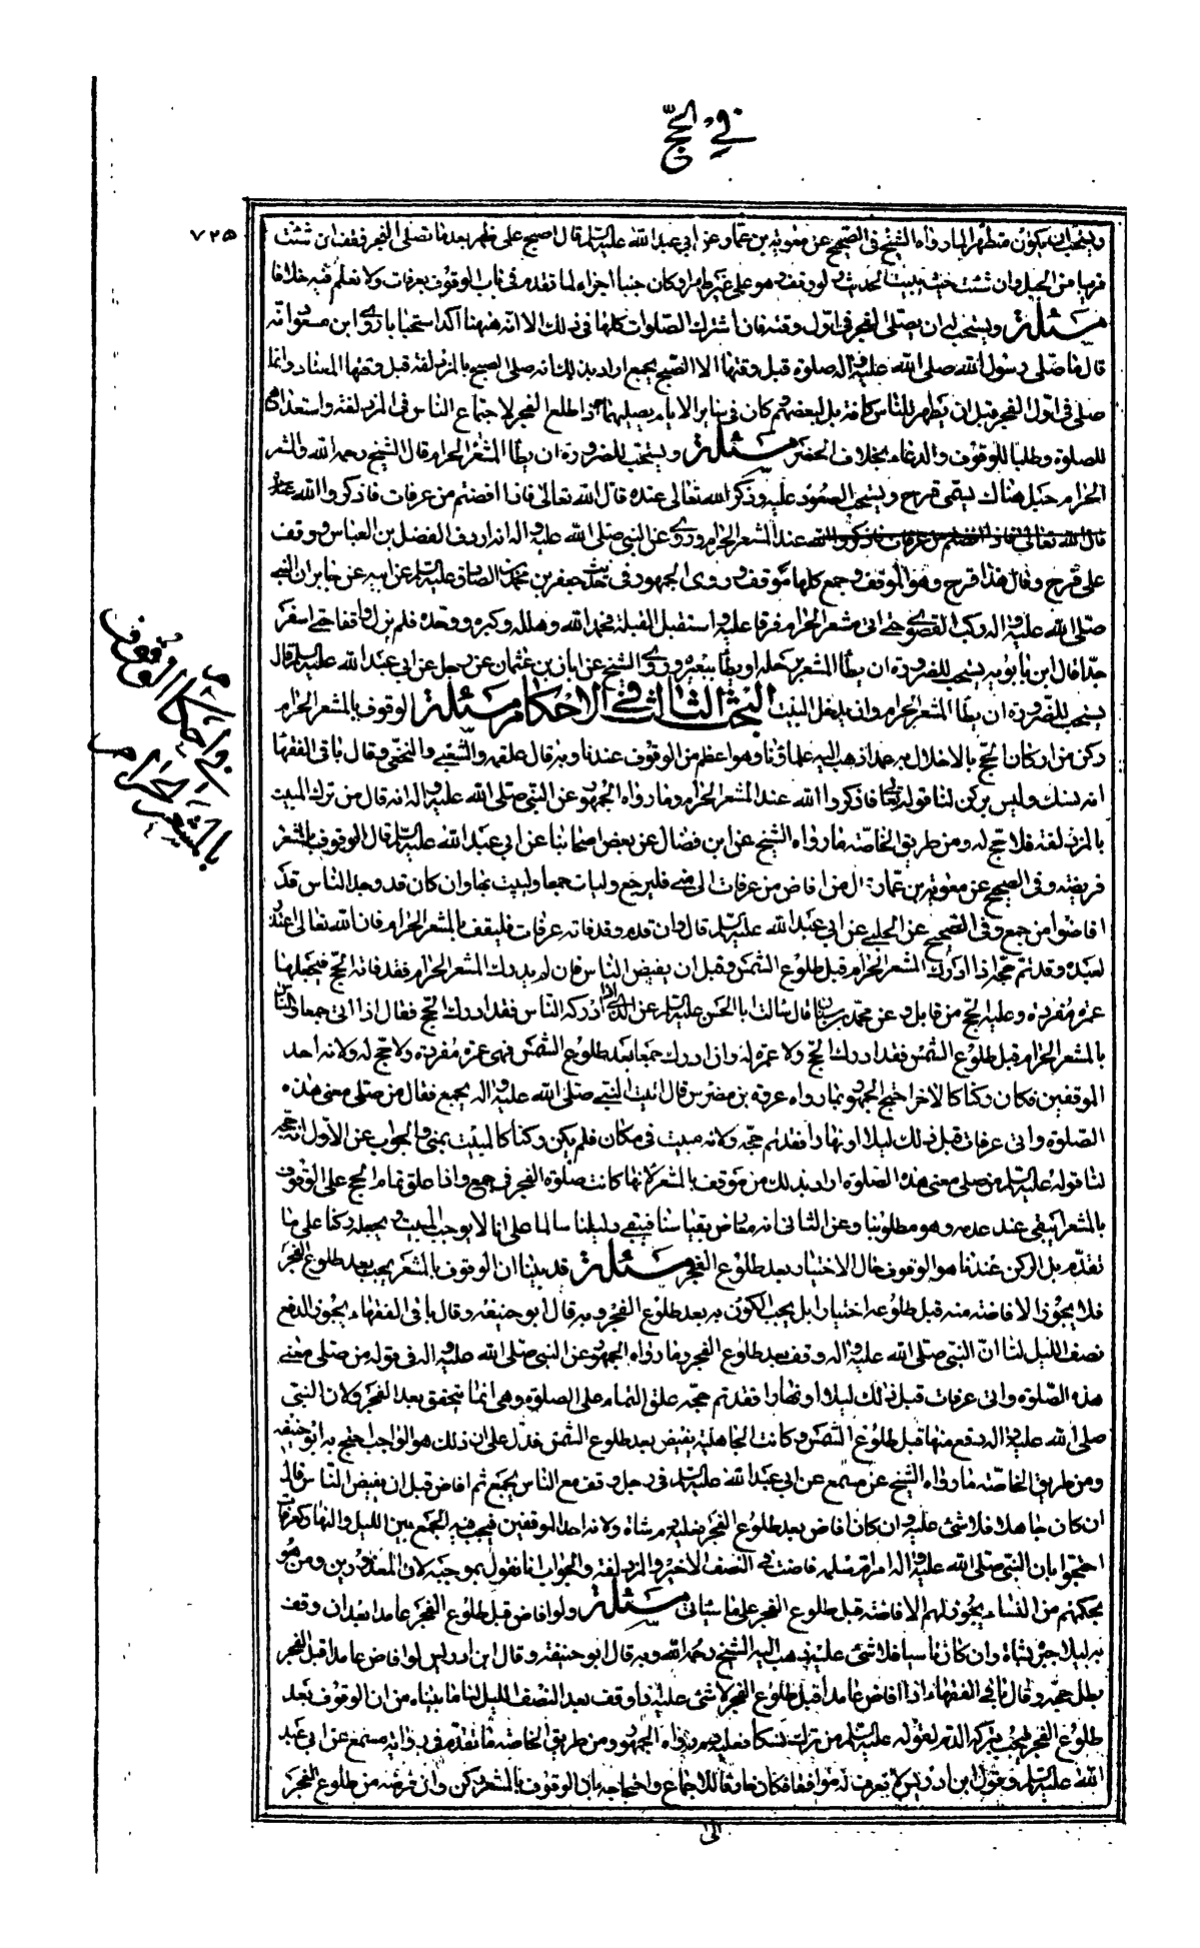 في الحجّ
٧٢٥
ويستحب ان يكون متطهرا لما رواه الشيخ في الصحيح عن معوية بن عمار عن ابي عبد الله عليه السلم قال اصبح على طهر بعد ما تصلى الفجر فقف ان شئت
قريبا من الجبل وان شئت حيث تبيت الحديث ولو وقف وهو على غير طهر او كان جنبا اجزاه لما تقدم في باب الوقوف بعرفات ولا نعلم فيه خلافا
مسئلة ويستحب له ان يصلى الفجر في اول وقته فان اشترك الصلوات كلها في ذلك الا انه ههنا آكد استحبابا روى ابن مسعود انه
قال ما صلى رسول الله صلى الله عليه واله صلوة قبل وقتها الا الصبح بجمع اراد بذلك انه صلى الصبح بالمزدلفة قبل وقتها المعتاد وانما
صلى في اول الفجر قبل ان يظهر للناس كافة بل لبعضهم وكان في ساير الايام يصليها اذا طلع الفجر لاجتماع الناس في المزدلفة واستعدادهم
للصلوة وطلبا للوقوف والدعاء بخلاف الحضر مسئلة ويستحب للصرورة ان يطأ المشعر الحرام قال الشيخ رحمه الله والمشعر
الحرام جبل هناك يسمى قزح ويستحب الصعود عليه وذكر الله تعالى عنده قال الله تعالى فاذا افضتم من عرفات فاذكروا الله عند
قال الله تعالى فاذا افضتم من عرفات فاذكروا الله عند المشعر الحرام وروى عن النبي صلى الله عليه واله انه اردف الفضل بن العباس ووقف
على قزح وقال هذا قزح وهو الموقف وجمع كلها موقف وروى الجمهور في حديث جعفر بن محمد الصادق عليه السلم عن ابيه عن جابر ان النبي
صلى الله عليه واله ركب القصوى حتى اتى مشعر الحرام فرقا عليه واستقبل القبلة فحمد الله وهلله وكبره ووحده فلم يزل واقفا حتى اسفر
جدا قال ابن بابويه يستحب للصرورة ان يطأ المشعر برجله او يطأ ببعيره وروى الشيخ عن ابان بن عثمان عن رجل عن ابي عبد الله عليه السلم قال
يستحب للصرورة ان يطأ المشعر الحرام وان يدخل البيت البحث الثالث في الاحكام مسئلة الوقوف بالمشعر الحرام
ركن من اركان الحج بالاخلال به عمدا ذهب اليه علماؤنا وهو اعظم من الوقوف عندنا وبه قال علقمه والشعبي والنخعي وقال باقي الفقهاء
انه نسك وليس بركن لنا قوله تعالى فاذكروا الله عند المشعر الحرام وما رواه الجمهور عن النبي صلى الله عليه واله انه قال من ترك المبيت
بالمزدلفة فلا حج له ومن طريق الخاصة ما رواه الشيخ عن ابن فضال عن بعض اصحابنا عن ابي عبد الله عليه السلم قال الوقوف بالمشعر
فريضة وفي الصحيح عن معوية بن عمار قال من افاض من عرفات الى منى فليرجع وليات جمعا وليبت بها وان كان قد وجد الناس قد
افاضوا من جمع وفي الصحيح عن الحلبي عن ابي عبد الله عليه السلم قال وان قدم وقد فاته عرفات فليقف بالمشعر الحرام فان الله تعالى اعذر
لعبده وقد تم حجه اذا ادرك المشعر الحرام قبل طلوع الشمس وقبل ان يفيض الناس فان لم يدرك المشعر الحرام فقد فاته الحج فيجعلها
عمرة مفردة وعليه الحج من قابل وعن محمد بن سنان قال سالت ابا الحسن عليه السلم عن الذي اذا ادركه الناس فقد ادرك الحج فقال اذا اتى جمعا والناس
بالمشعر الحرام قبل طلوع الشمس فقد ادرك الحج ولا عمرة له وان ادرك جمعا بعد طلوع الشمس فهى عمرة مفردة ولا حج له ولانه احد
الموقفين فكان ركنا كالاخر احتج الجمهور بما رواه عروة بن مضرس قال اتيت النبي صلى الله عليه واله بجمع فقال من صلى معنى هذه
الصلوة واتى عرفات قبل ذلك ليلا او نهارا فقد تم حجه ولانه مبيت في مكان فلم يكن ركنا كالمبيت بمنى والجواب عن الاول انه حجة
لنا قوله عليه السلم من صلى معنى هذه الصلوة اراد بذلك من موقف بالمشعر لانها كانت صلوة الفجر في جمع واذا علق تمام الحج على الوقوف
بالمشعر انتفى عند عدمه وهو مطلوبنا وعن الثاني انه معارض بقياسنا فيبقى دليلنا سالما على انا لا نوجب المبيت ونجعله ركنا على ما
تقدم بل الركن عندنا هو الوقوف حال الاختيار بعد طلوع الفجر مسئلة قد بينا ان الوقوف بالمشعر يجب بعد طلوع الفجر
فلا يجوز الافاضة منه قبل طلوعه اختيارا بل يجب الكون به بعد طلوع الفجر وبه قال ابو حنيفة وقال باقي الفقهاء يجوز الدفع
نصف الليل لنا ان النبي صلى الله عليه واله وقف بعد طلوع الفجر وما رواه الجمهور عن النبي صلى الله عليه واله في قوله من صلى معنى
هذه الصلوة واتى عرفات قبل ذلك ليلا او نهارا فقد تم حجه علق التمام على الصلوة وهى انما تتحقق بعد الفجر ولان النبي
صلى الله عليه واله دفع منها قبل طلوع الشمس وكانت الجاهلية يفيض بعد طلوع الشمس فدل على ان ذلك هو الواجب احتج به ابو حنيفه
ومن طريق الخاصة ما رواه الشيخ عن مسمع عن ابي عبد الله عليه السلم في رجل وقف مع الناس بجمع ثم افاض قبل ان يفيض الناس قال
ان كان جاهلا فلا شئ عليه وان كان افاض بعد طلوع الفجر فعليه دم شاة ولانه احد الموقفين فيجب فيه الجمع بين الليل والنهار كعرفات
احتجوا بان النبي صلى الله عليه واله امر ام سلمه فاضت في النصف الاخير والمزدلفة والجواب انا نقول بموجبه لان المعذورين ومن هو
بحكمهم من النساء يجوز لهم الافاضة قبل طلوع الفجر على ما سياتي مسئلة ولو افاض قبل طلوع الفجر عامدا بعد ان وقف
به ليلا جبره بشاة وان كان ناسيا فلا شئ عليه ذهب اليه الشيخ رحمه الله وبه قال ابو حنيفة وقال ابن ادريس لو افاض عامدا قبل الفجر
بطل حجه وقال باقي الفقهاء اذا افاض عامدا قبل طلوع الفجر لا شئ عليه اذا وقف بعد النصف الليل لنا ما بيناه من ان الوقوف بعد
طلوع الفجر فيجب بتركه الدم لقوله عليه السلم من ترك نسكا فعليه دم رواه الجمهور ومن طريق الخاصة ما تقدم في رواية مسمع عن ابي عبد
الله عليه السلم وقول ابن ادريس لا نعرف له موافقا فكان خارقا للاجماع واحتجاجه بان الوقوف بالمشعر ركن وان فرضه من طلوع الفجر
الى
في احكام الوقوف
بالمشعر الحرام